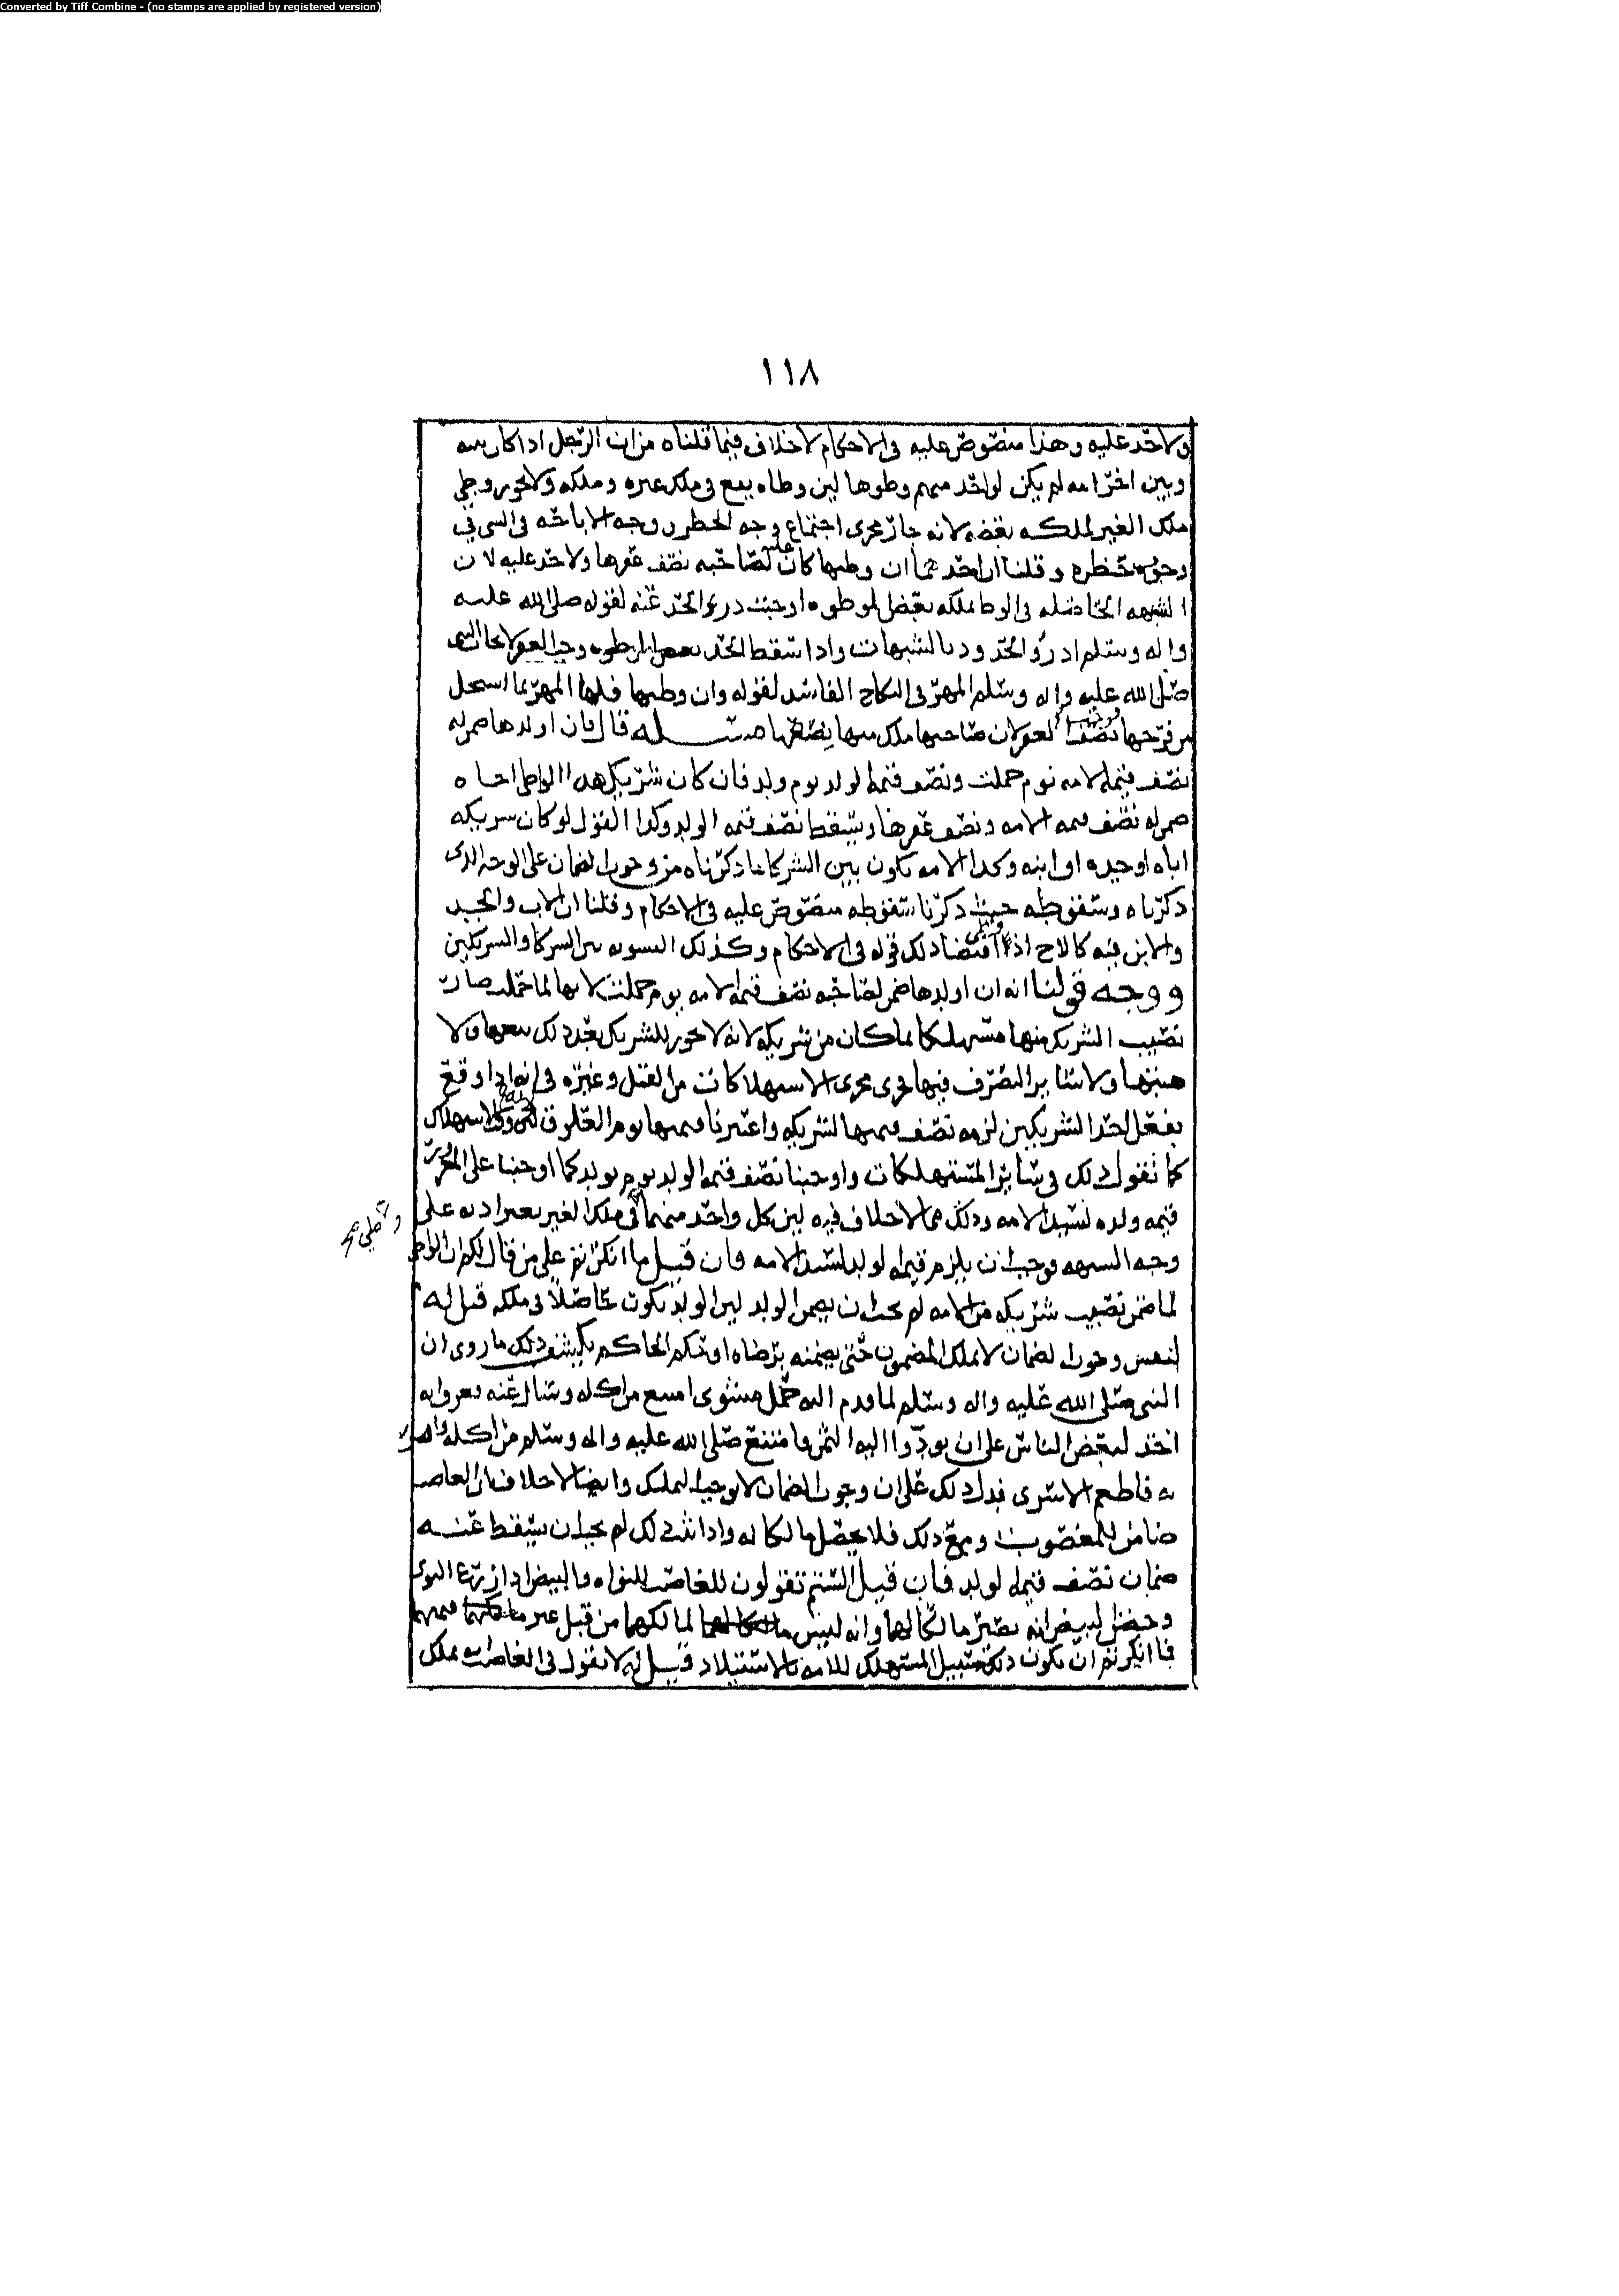 Converted by Tiff Combine - (no stamps are applied by registered version)
١١٨
ولاحد عليه وهذا منصوص عليه في الاحكام لاخلاف فيما قلناه من ان الرجل اذا كان بينه
وبين اخر امه لم يكن لواحد منهم وطوها لين وطاه يقع في ملك غيره وملكه ولا يجوز وطي
ملك الغير لملكه بعضه لانه جاز مجرى اجتماع وجه الحظر ووجه الاباحه في الشي في
وجوب حظره وقلنا ان احدهما ان وطيها كان عليه لصاحبه نصف عقرها ولاحد عليه لان
الشبهه الحاصله في الوطا ملكه بعض الموطوه اوجبت درى الحد عنه لقوله صلى الله عليه
واله وسلم ادرؤ الحدود بالشبهات واذا سقط الحد وجب العقر النبي
صلى الله عليه واله وسلم المهر في النكاح الفاسد لقوله وان وطيها فلها المهر بما استحل
من فرجها نصف العقر لان صاحبها ملك منها نصفها مسله قال فان اولدها ضمن له
نصف قيمه الامه يوم حملت ونصف قيمه الولد يوم ولد فان كان شريك هذا الواطى اخاه
ضمن له نصف قيمه الامه ونصف عقرها وسقط نصف قيمه الولد وكذا القول لو كان شريكه
اباه او جده او ابنه وكذا الامه تكون بين الشركا ما ذكرناه من وجوب الضمان على الوجه الذي
ذكرناه وسقوطه حيث ذكرنا سقوطه منصوص عليه في الاحكام وقلنا ان الاب والجد
والابن فيه كالاخ اقتضا ذلك قوله في الاحكام وكذلك التسويه بين الشركا والشريكين
ووجه قولنا انه ان اولدها ضمن لصاحبه نصف قيمه الامه يوم حملت لانها لما حملت صار
نصيب الشريك منها مستهلكا لما كان من شريكه لانه لا يجوز للشريك بعد ذلك بيعها ولا
هبتها ولا سائر التصرف فيها فجرى مجرى الاستهلاكات من القتل وغيره في انه اذا وقع
بفعل احد الشريكين لزمه نصف قيمتها لشريكه واعتبرنا قيمتها يوم العلوق وقت الاستهلاك
كما نقول ذلك في سائر المستهلكات واوجبنا نصف قيمه الولد يوم يولد كما اوجبنا على المغرور
قيمه ولده لسيد الامه وذلك مما لاخلاف فيه لين كل واحد منهما في ملك الغير بغير اذنه على
وجه الشبهه فوجب ان يلزم قيمه الولد لسيد الامه فان قيل ما انكرتم على من قال لكم ان الواطى
لما ضمن نصيب شريكه من الامه لم يجب ان يضمن الولد لين الولد يكون حاصلا في ملكه قيل له
ليس وجوب الضمان لا يملك المضمون حتى يضمنه برضاه او بحكم الحاكم يكشف ذلك ما روي ان
النبي صلى الله عليه واله وسلم لما قدم اليه حمل مشوي امتنع من اكله وسال عنه فعرف انه
اخذ لبعض الناس على ان يودوا اليه الثمن فامتنع صلى الله عليه واله وسلم من اكله وامر
به فاطعم الاسرى فدل ذلك على ان وجوب الضمان لا يوجب التملك وايضا لاخلاف ان الغاصب
ضامن للمغصوب ومع ذلك فلا يحصل مالكا له واذا ثبت ذلك لم يجب ان يسقط عنه
ضمان نصف قيمه الولد فان قيل الستم تقولون للغاصب للنواه والبيض اذا زرع النوى
وحضن البيض انه يصير مالكا لهما وانه ليس لمالكهما من قبل غير قيمتهما
فما انكرتم ان يكون ذلك سبيل المستهلك للامه بالاستيلاد قيل له لا نقول في الغاصب انه يملك